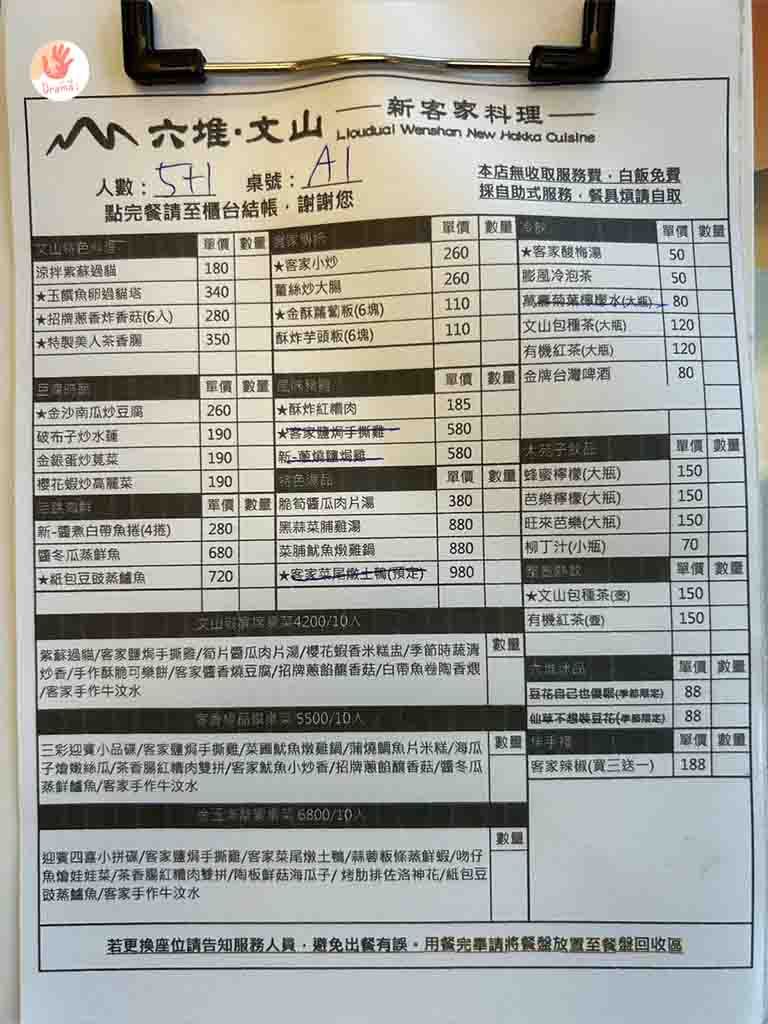 Drama
六堆·文山
新客家料理
Liouduai Wenshan New Hakka Cuisine
人數：5+1 桌號：A1
本店無收取服務費，白飯免費
採自助式服務，餐具煩請自取
點完餐請至櫃台結帳，謝謝您
單價 數量
涼拌紫蘇過貓 180
★玉饌魚卵過貓塔 340
★招牌蔥香炸香菇(6入) 280
★特製美人茶香腸 350
單價 數量
★金沙南瓜炒豆腐 260
破布子炒水蓮 190
金銀蛋炒莧菜 190
櫻花蝦炒高麗菜 190
單價 數量
新-醬煮白帶魚捲(4捲) 280
醬冬瓜蒸鮮魚 680
★紙包豆豉蒸鱸魚 720
單價 數量
★客家小炒 260
薑絲炒大腸 260
★金酥蘿蔔粄(6塊) 110
酥炸芋頭粄(6塊) 110
單價 數量
★酥炸紅糟肉 185
★客家鹽焗手撕雞 580
新-蔥燒鹽焗雞 580
特色湯品 單價 數量
脆筍醬瓜肉片湯 380
黑蒜菜脯雞湯 880
菜脯魷魚燉雞鍋 880
★客家菜尾燉土鴨(預定) 980
冷飲 單價 數量
★客家酸梅湯 50
膨風冷泡茶 50
萬壽菊葉檸檬水(大瓶) 80
文山包種茶(大瓶) 120
有機紅茶(大瓶) 120
金牌台灣啤酒 80
大苑子飲品 單價 數量
蜂蜜檸檬(大瓶) 150
芭樂檸檬(大瓶) 150
旺來芭樂(大瓶) 150
柳丁汁(小瓶) 70
單價 數量
★文山包種茶(壺) 150
有機紅茶(壺) 150
六堆冰品 單價 數量
豆花自己也優鬆(季節限定) 88
仙草不想裝豆花(季節限定) 88
伴手禮 單價 數量
客家辣椒(買三送一) 188
4200/10人
數量
紫蘇過貓/客家鹽焗手撕雞/筍片醬瓜肉片湯/櫻花蝦香米糕盅/季節時蔬清
炒香/手作酥脆可樂餅/客家醬香燒豆腐/招牌蔥餡釀香菇/白帶魚卷陶香煨
/客家手作牛汶水
5500/10人
數量
三彩迎賓小品碟/客家鹽焗手撕雞/菜脯魷魚燉雞鍋/蒲燒鯛魚片米糕/海瓜
子燴嫩絲瓜/茶香腸紅糟肉雙拼/客家魷魚小炒香/招牌蔥餡釀香菇/醬冬瓜
蒸鮮鱸魚/客家手作牛汶水
6800/10人
數量
迎賓四喜小拼碟/客家鹽焗手撕雞/客家菜尾燉土鴨/蒜蓉粄條蒸鮮蝦/吻仔
魚燴娃娃菜/茶香腸紅糟肉雙拼/陶板鮮菇海瓜子/ 烤肋排佐洛神花/紙包豆
豉蒸鱸魚/客家手作牛汶水
若更換座位請告知服務人員，避免出餐有誤。用餐完畢請將餐盤放置至餐盤回收區